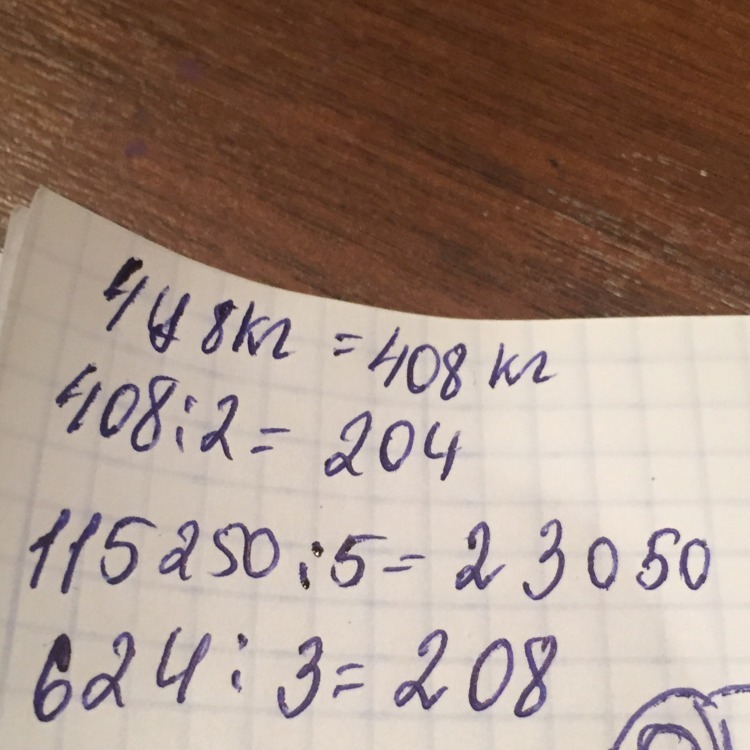 4ц 8кг = 408 кг
408:2= 204
115250:5= 23050
624: 3= 208